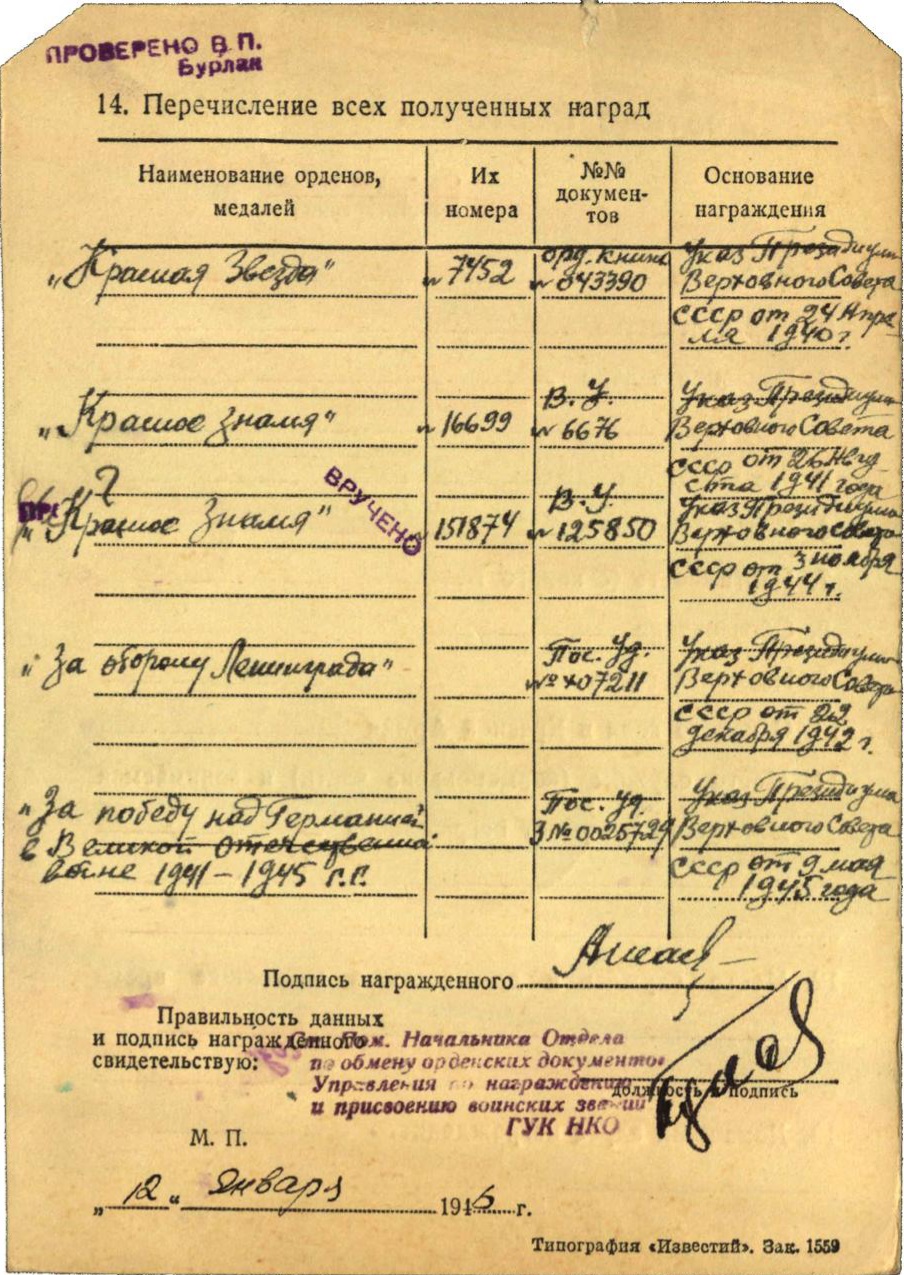 ПРОВЕРЕНО В. П.
Бурлак
14. Перечисление всех полученных наград
Наименование орденов, медалей
Их номера
№№ документов
Основание награждения
„Красная Звезда" № 7452 орд. книж. № 043390 Указ Президиума
Верховного Совета
СССР от 24 Апре-
ля 1940 г.
„Красное знамя" № 16699 В. У. № 6676 Указ Президиума
Верховного Совета
СССР от 26 Авгу-
ста 1941 года
ВРУЧЕНО
„Красное Знамя" 151874 В. У. № 125850 Указ Президиума
Верховного Совета
СССР от 3 ноября
1944 г.
„За оборону Ленинграда" Пос. Уд. Указ Президиума
Верховного Совета
СССР от 22
декабря 1942 г.
„За победу над Германией
в Великой Отечественной
войне 1941 – 1945 г.г. Пос. Уд. З № 0025729 Указ Президиума
Верховного Совета
СССР от 9 мая
1945 года
Подпись награжденного
Правильность данных
и подпись награжденного
свидетельствую:
Пом. Начальника Отдела
по обмену орденских документов
Управления по награждению
и присвоению воинских званий
ГУК НКО
должность и подпись
М. П.
„ 12 " Января 1946 г.
Типография «Известий». Зак. 1559